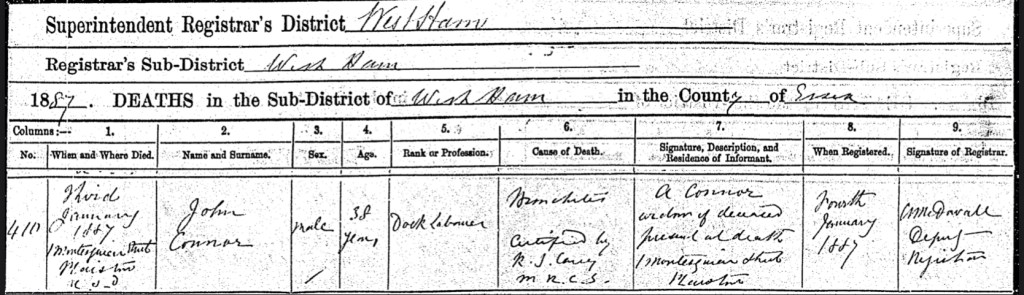 Superintendent Registrar's District West Ham
Registrar's Sub-District West Ham
1887. DEATHS in the Sub-District of West Ham in the County of Essex
Columns:— 1. 2. 3. 4. 5. 6. 7. 8. 9.
No. When and Where Died. Name and Surname. Sex. Age. Rank or Profession. Cause of Death. Signature, Description, and Residence of Informant. When Registered. Signature of Registrar.
410
Third
January
1887
1 Montesquieu Street
Plaistow
John
Connor
male
38
years
Dock Labourer
Bronchitis
Certified by
R. J. Carey
M R.C.S.
A Connor
widow of deceased
present at death
1 Montesquieu Street
Plaistow
Fourth
January
1887
Deputy
Registrar